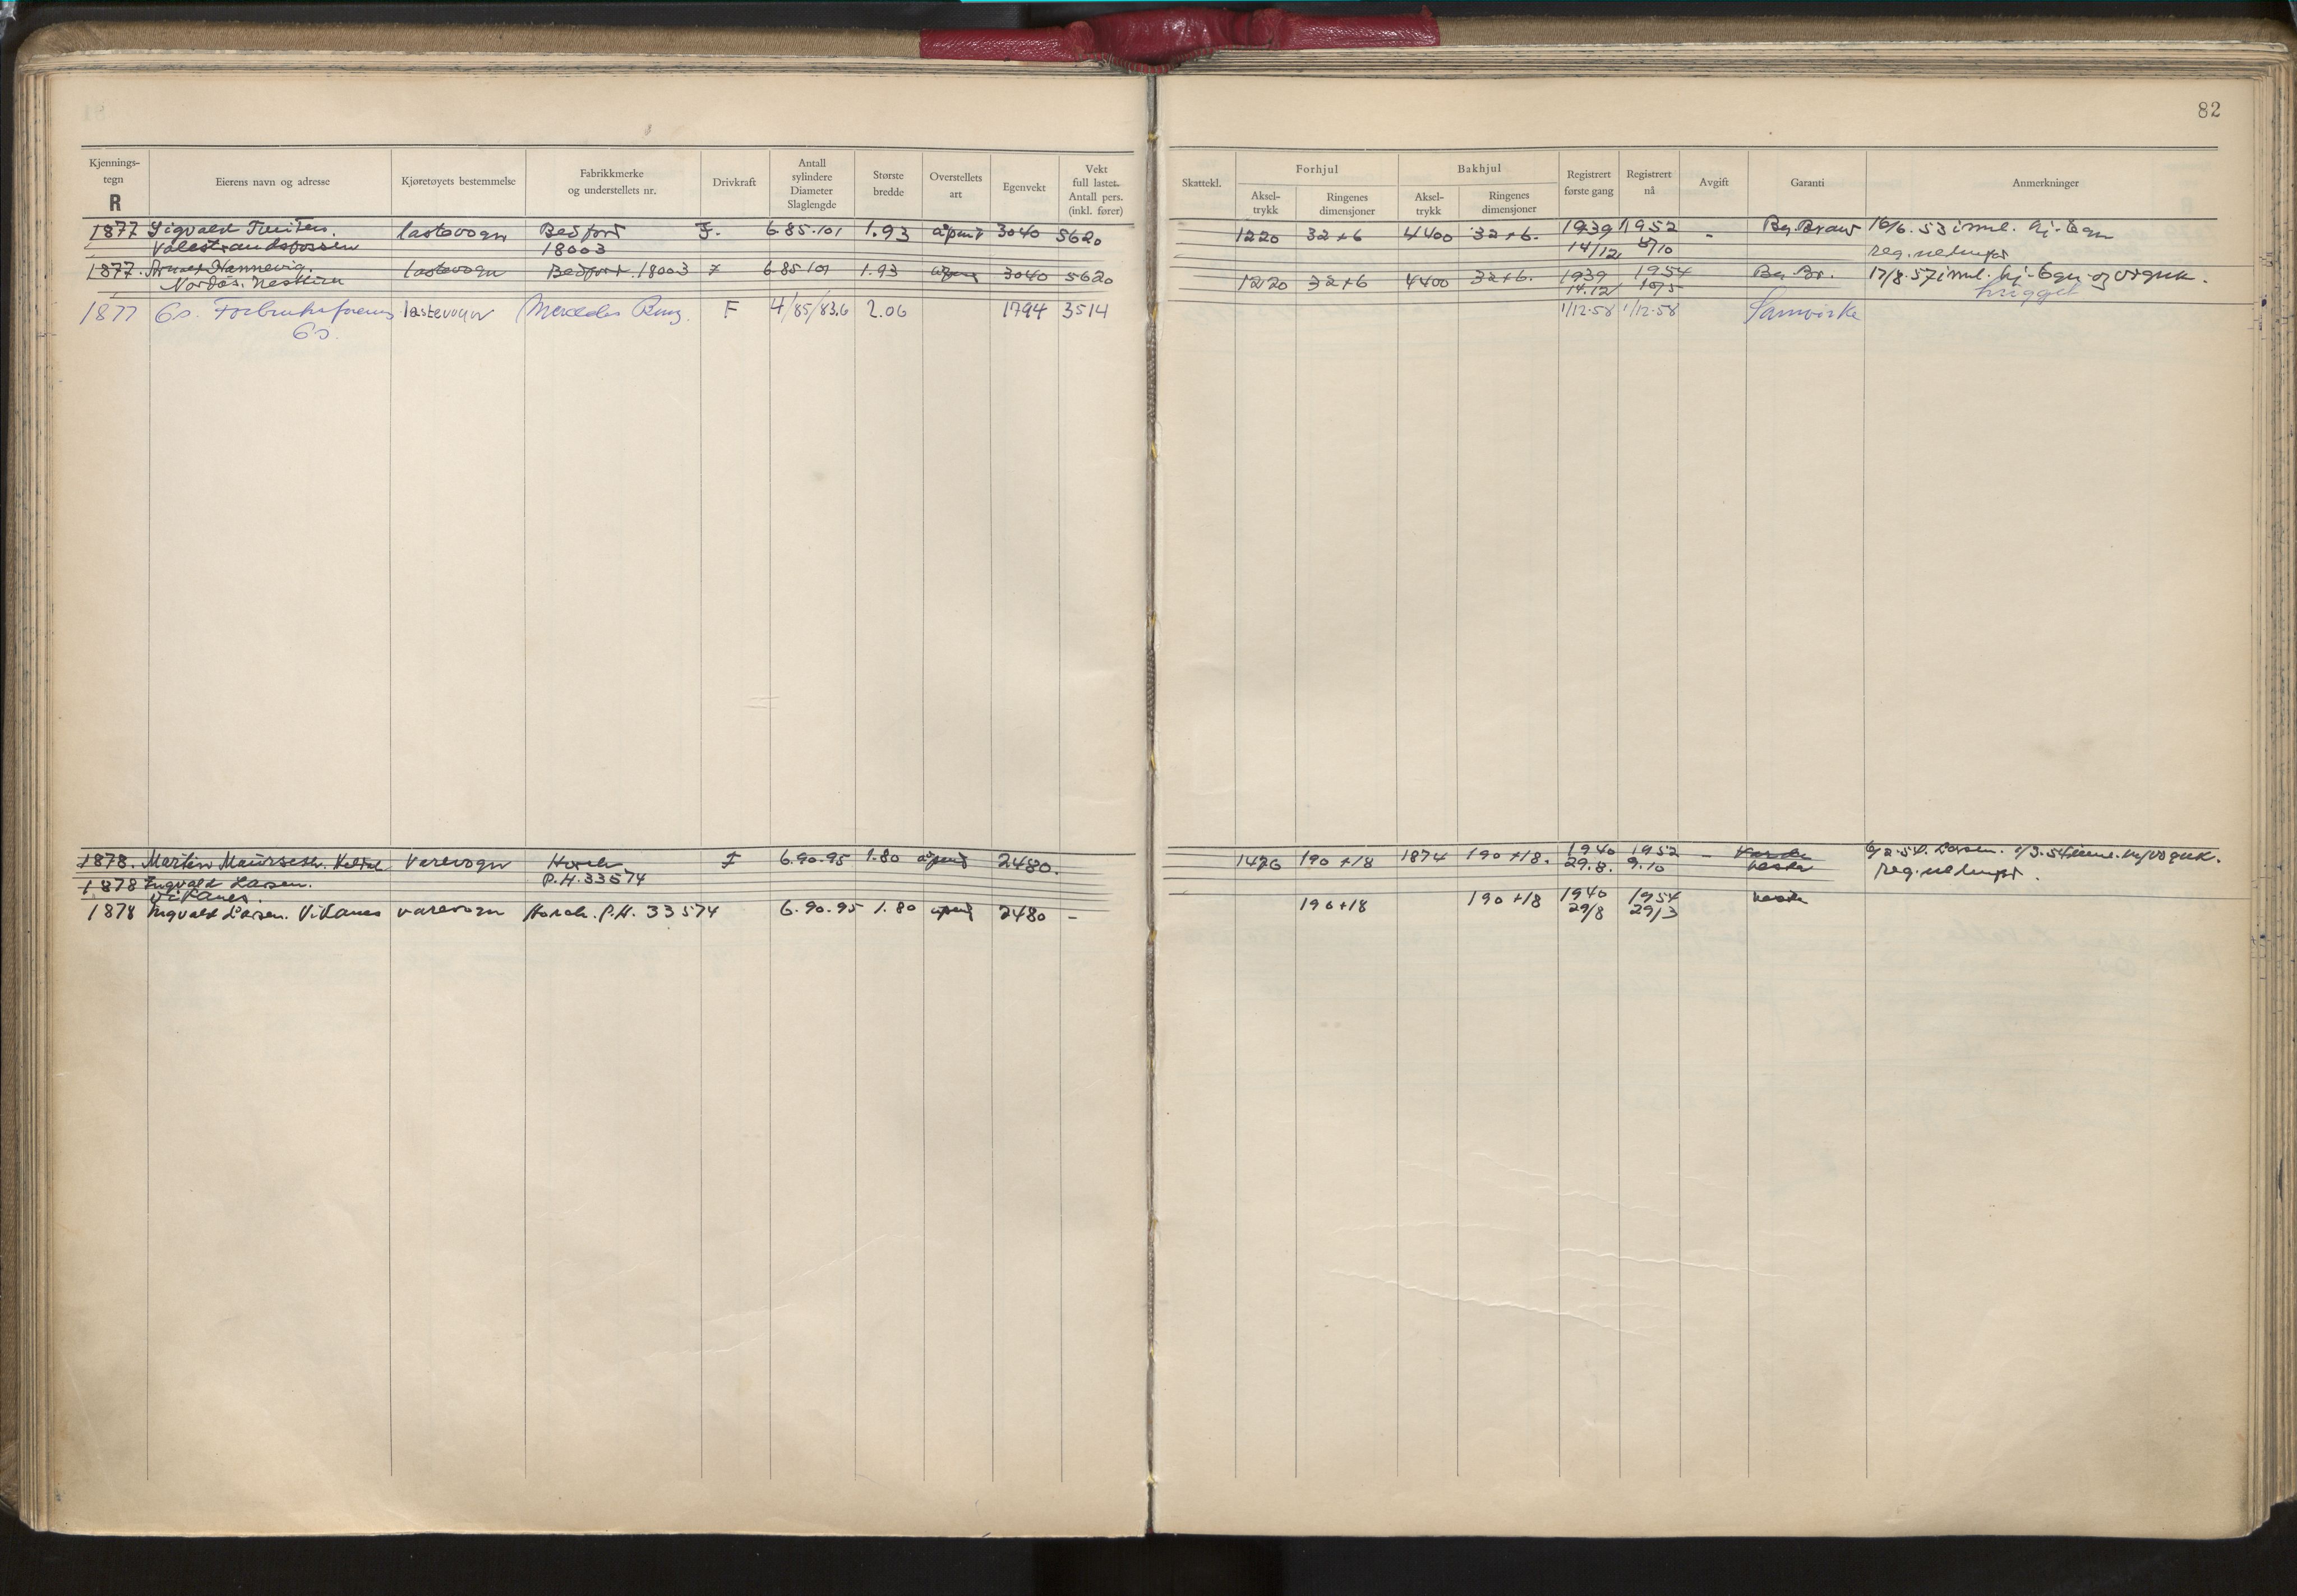 82
Kjennings-
tegn
R
Eierens navn og adresse
Kjøretøyets bestemmelse
Fabrikkmerke
og understellets nr.
Drivkraft
Antall
sylindere
Diameter
Slaglengde
Største
bredde
Overstellets
art
Egenvekt
Vekt
full lastet.
Antall pers.
(inkl. fører)
Skattekl.
Forhjul
Aksel-
trykk
Ringenes
dimensjoner
Bakhjul
Aksel-
trykk
Ringenes
dimensjoner
Registrert
første gang
Registrert
nå
Avgift
Garanti
Anmerkninger
1877 Sigvald lastevogn Bedford F. 6.85.101 1.93 åpent 3040 5620 1220 32+6 4400 32+6. 1939 1952 - 16/6.53 innl. kj-tegn
Valestrandsfossen 18003 14/12 8/10
1877. Hannevig. lastevogn Bedford. 18003 F 6.85.101 1.93 åpent 3040 5620 1220 32+6 4400 32+6. 1939 1954 17/8.57 innl. kj-tegn og vognk.
Nordås. Nesttun 14.12 10/5 hugget
1877 Os. Forbruksforening lastevogn Mercedes Benz. F 4/85/83.6 2.06 1794 3514 1/12-58 1/12-58 Samvirke
Os.
1878. Martin varevogn Horch F 6.90.95 1.80 åpent 2480. 1426 190+18 1874 190+18. 1940 1952 -
1878 Ingvald Larsen. P.H. 33574 29.8. 9.10
Vikanes.
1878 Ingvald Larsen. Vikanes varevogn Horch. P.H. 33574 6.90.95 1.80 åpent 2480 - 190+18 190+18 1940 1954
29/8 29/3